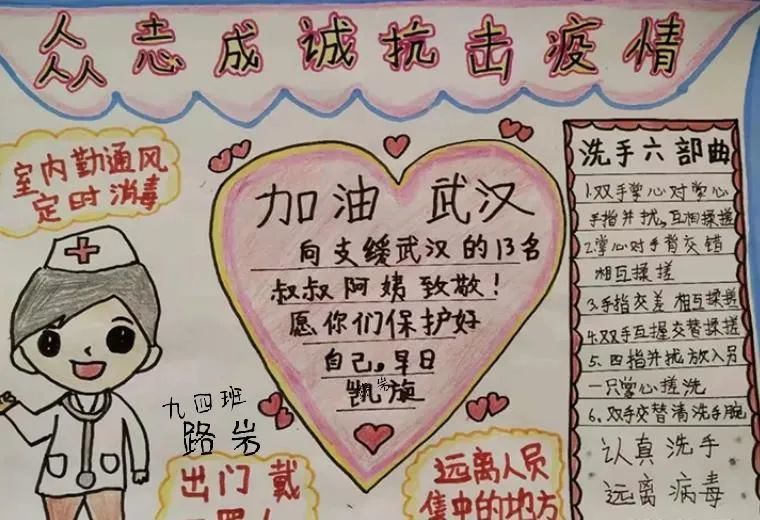 众志成诚抗击疫情
室内勤通风
定时消毒
加油 武汉
向支缓武汉的13名
叔叔阿姨致敬!
愿你们保护好
自己,早日
凯旋
九四班
路岩
出门 戴
远离人员
集中的地方
洗手六部曲
1.双手掌心对掌心
手指并扰,互相揉搓
2.掌心对手背交错
相互揉搓
3.手指交差 相互揉搓
4.双手互握交替揉搓
5、四指并扰放入员
一只掌心搓洗
6、双手交替清洗手腕
认真洗手
远离病毒